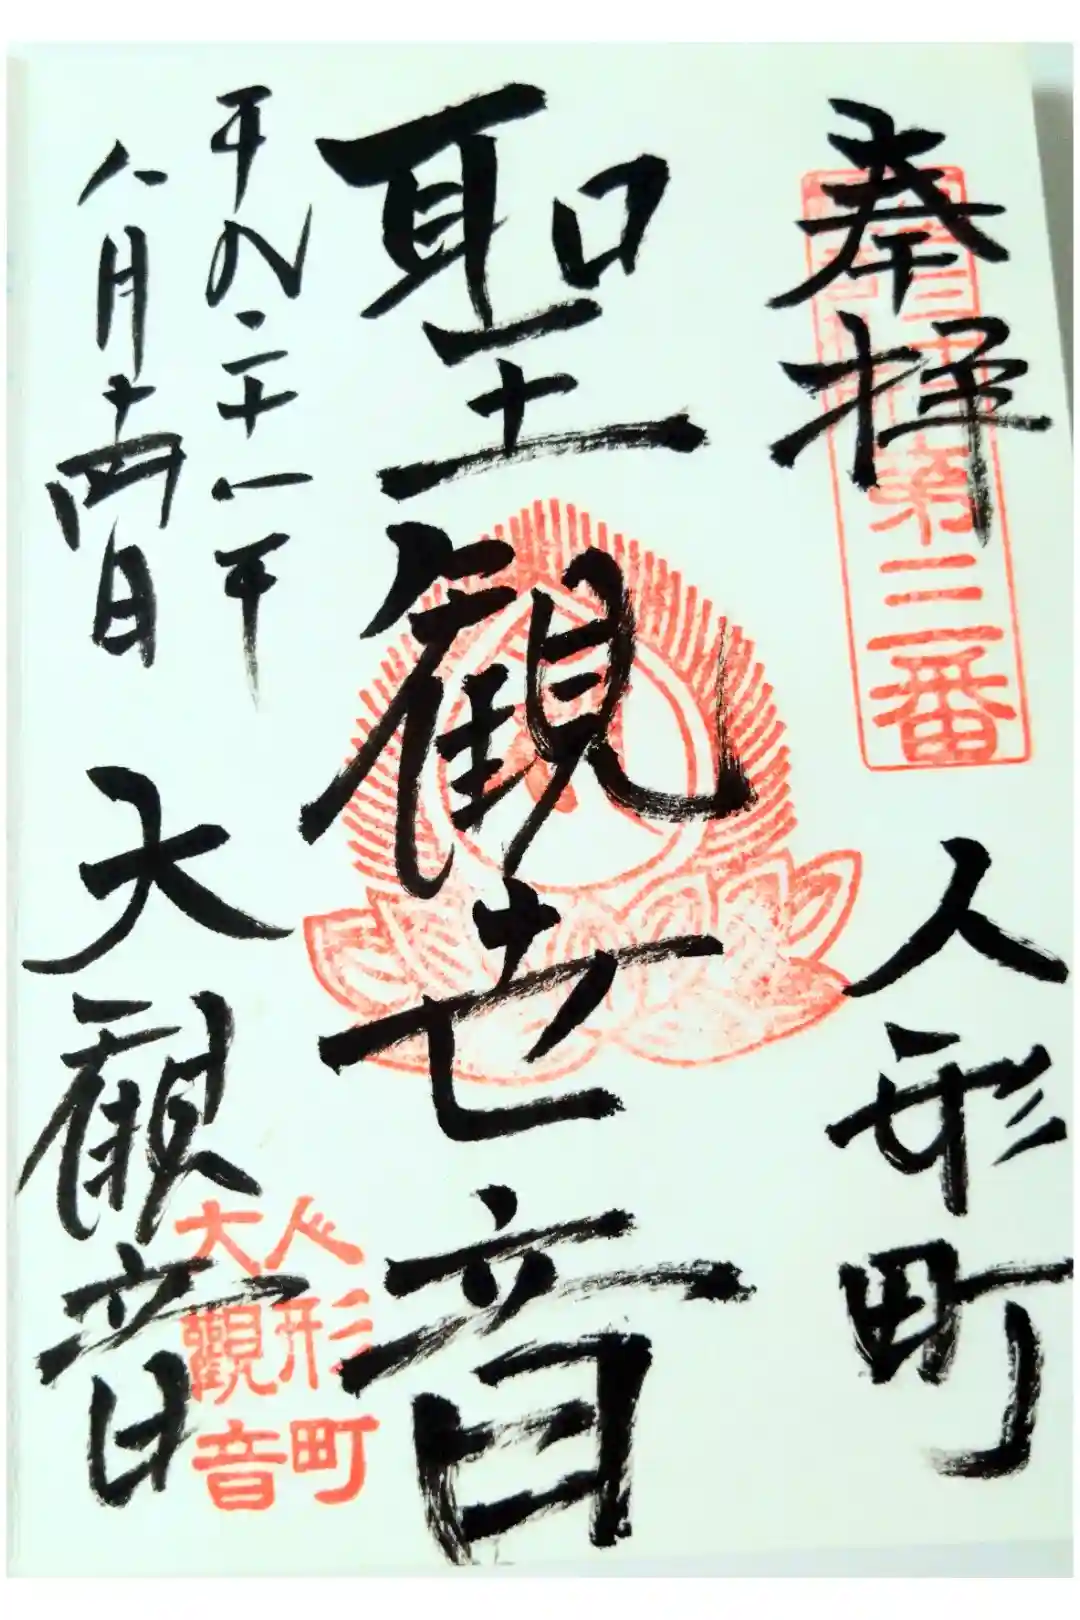 奉拝
第三番
人形町
聖観世音
平成二十一年
八月十四日
大観音
人形町
大觀音